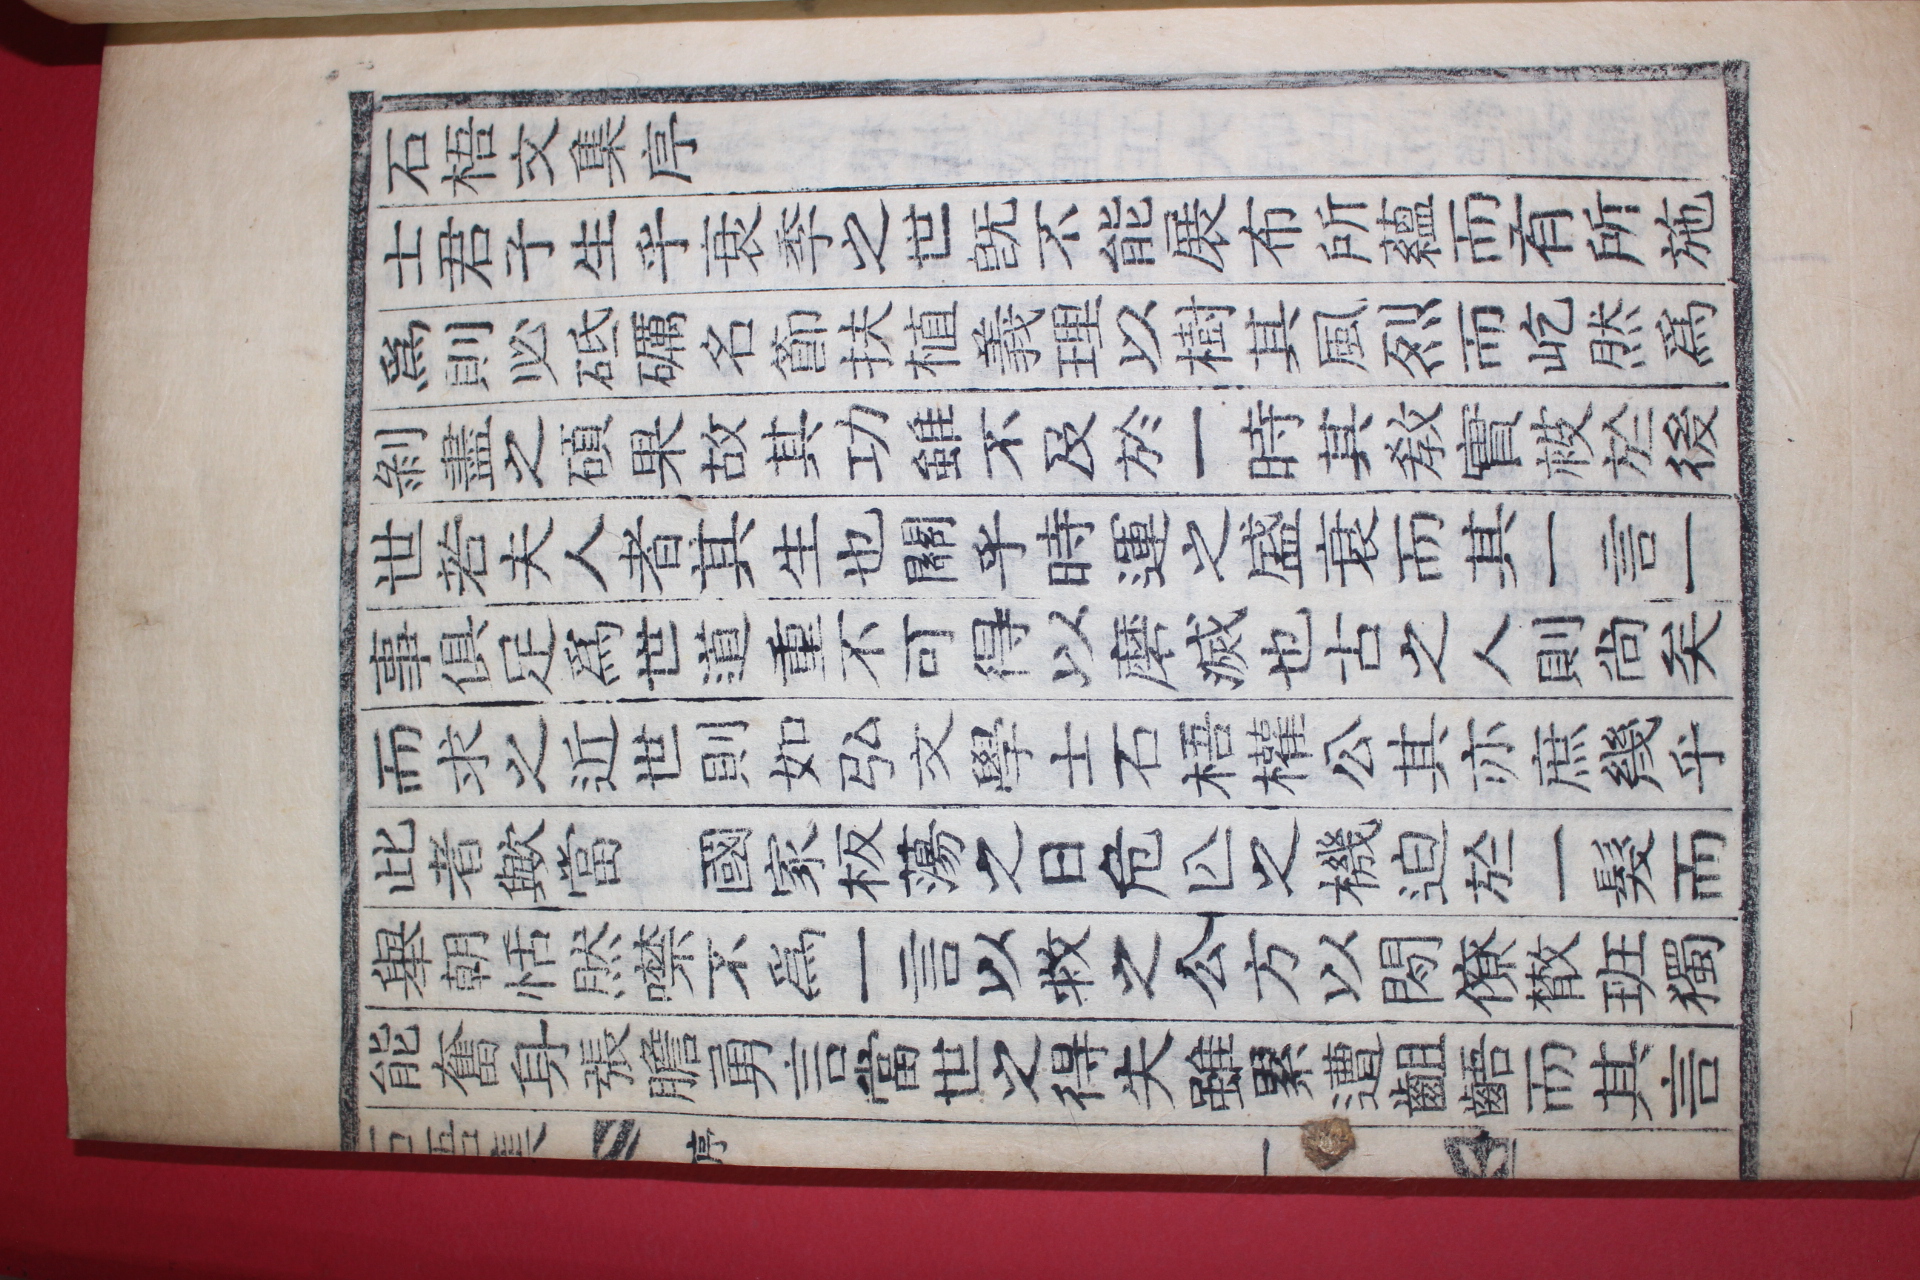 石梧文集序
士君子生乎衰季之世旣不能展布所蘊而有所施
爲則必砥礪名節扶植義理以樹其風烈而屹然爲
剝盡之碩果故其功雖不及於一時其敎實被於後
世若夫人者其生也關乎時運之盛衰而其一言一
事俱足爲世道重不可得以磨滅也古之人則尚矣
而求之近世則如弘文學士石梧權公其亦庶幾乎
此者歟當 國家板蕩之日危亾之機迫於一髮而
擧朝恬然噤不爲一言以救之公方以閑僚散班獨
能奮身張膽勇言當世之得失雖累遭齟齬而其言
石梧集 序 一